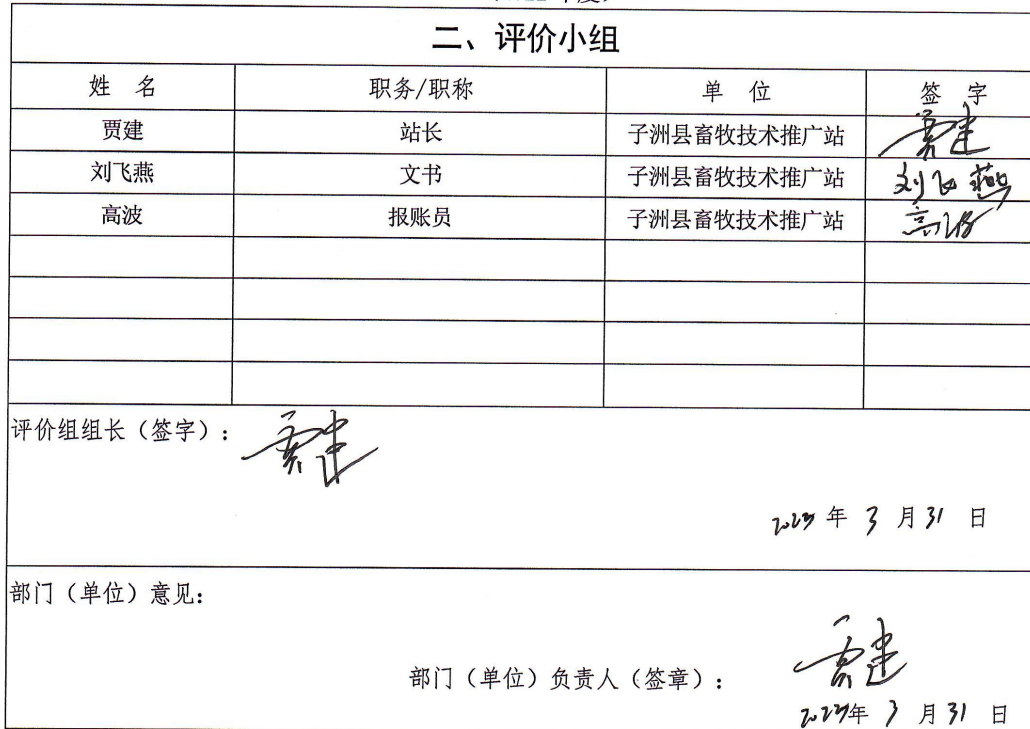 二、评价小组
姓 名 职务/职称 单 位 签 字
贾建 站长 子洲县畜牧技术推广站 贾建
刘飞燕 文书 子洲县畜牧技术推广站 刘飞燕
高波 报账员 子洲县畜牧技术推广站 高波
评价组组长（签字）： 贾建
2023 年 3 月 31 日
部门（单位）意见：
部门（单位）负责人（签章）： 贾建
2023年 3 月 31 日